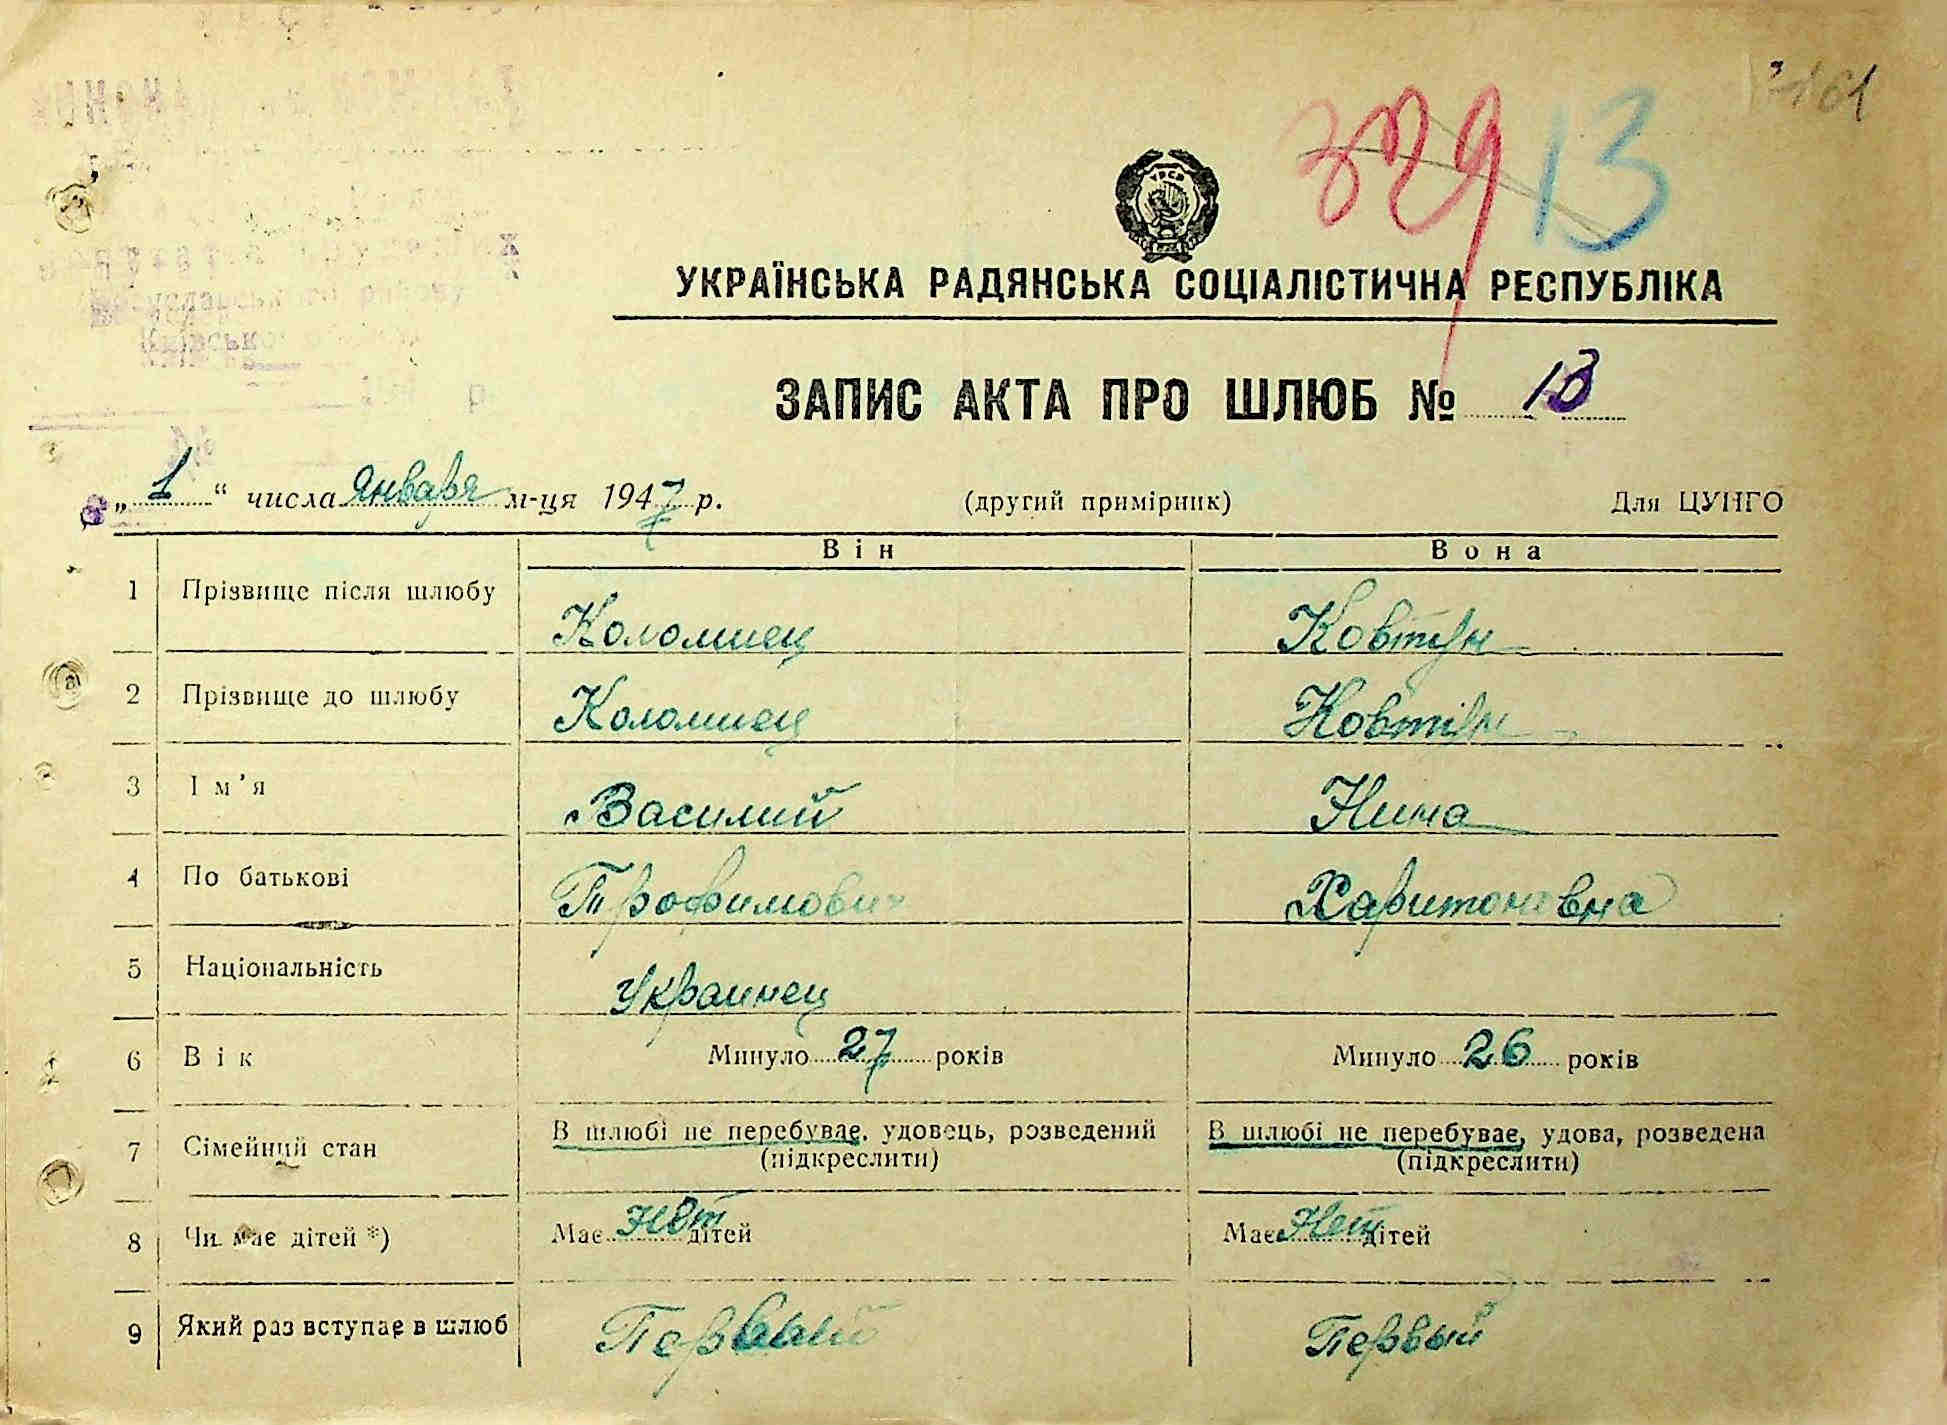 329 13
УРСР
УКРАЇНСЬКА РАДЯНСЬКА СОЦІАЛІСТИЧНА РЕСПУБЛІКА
ЗАПИС АКТА ПРО ШЛЮБ № 13
„1“ числа января м-ця 1947 р. (другий примірник) Для ЦУНГО
Він Вона
1 Прізвище після шлюбу Коломиец Ковтун
2 Прізвище до шлюбу Коломиец Ковтун
3 Ім'я Василий Нина
4 По батькові Трофимович Харитоновна
5 Національність Украинец
6 Вік Минуло 27 років Минуло 26 років
7 Сімейний стан В шлюбі не перебуває, удовець, розведений (підкреслити) В шлюбі не перебуває, удова, розведена (підкреслити)
8 Чи має дітей *) Має нет дітей Має нет дітей
9 Який раз вступає в шлюб Первый Первый